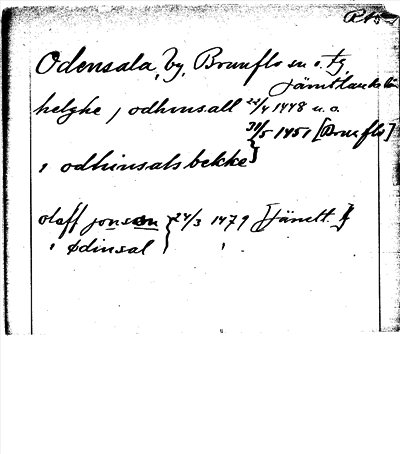 Odensala, by, Brunflo sn o. tg
Jämtlands län
helghe j odhinsall 22/4 1448 u. o.
31/5 1451 [Brunflo]
i odhinsals bekke }
olaff jonsson } 24/3 1479 [Jämtl. ]
i ødinsal